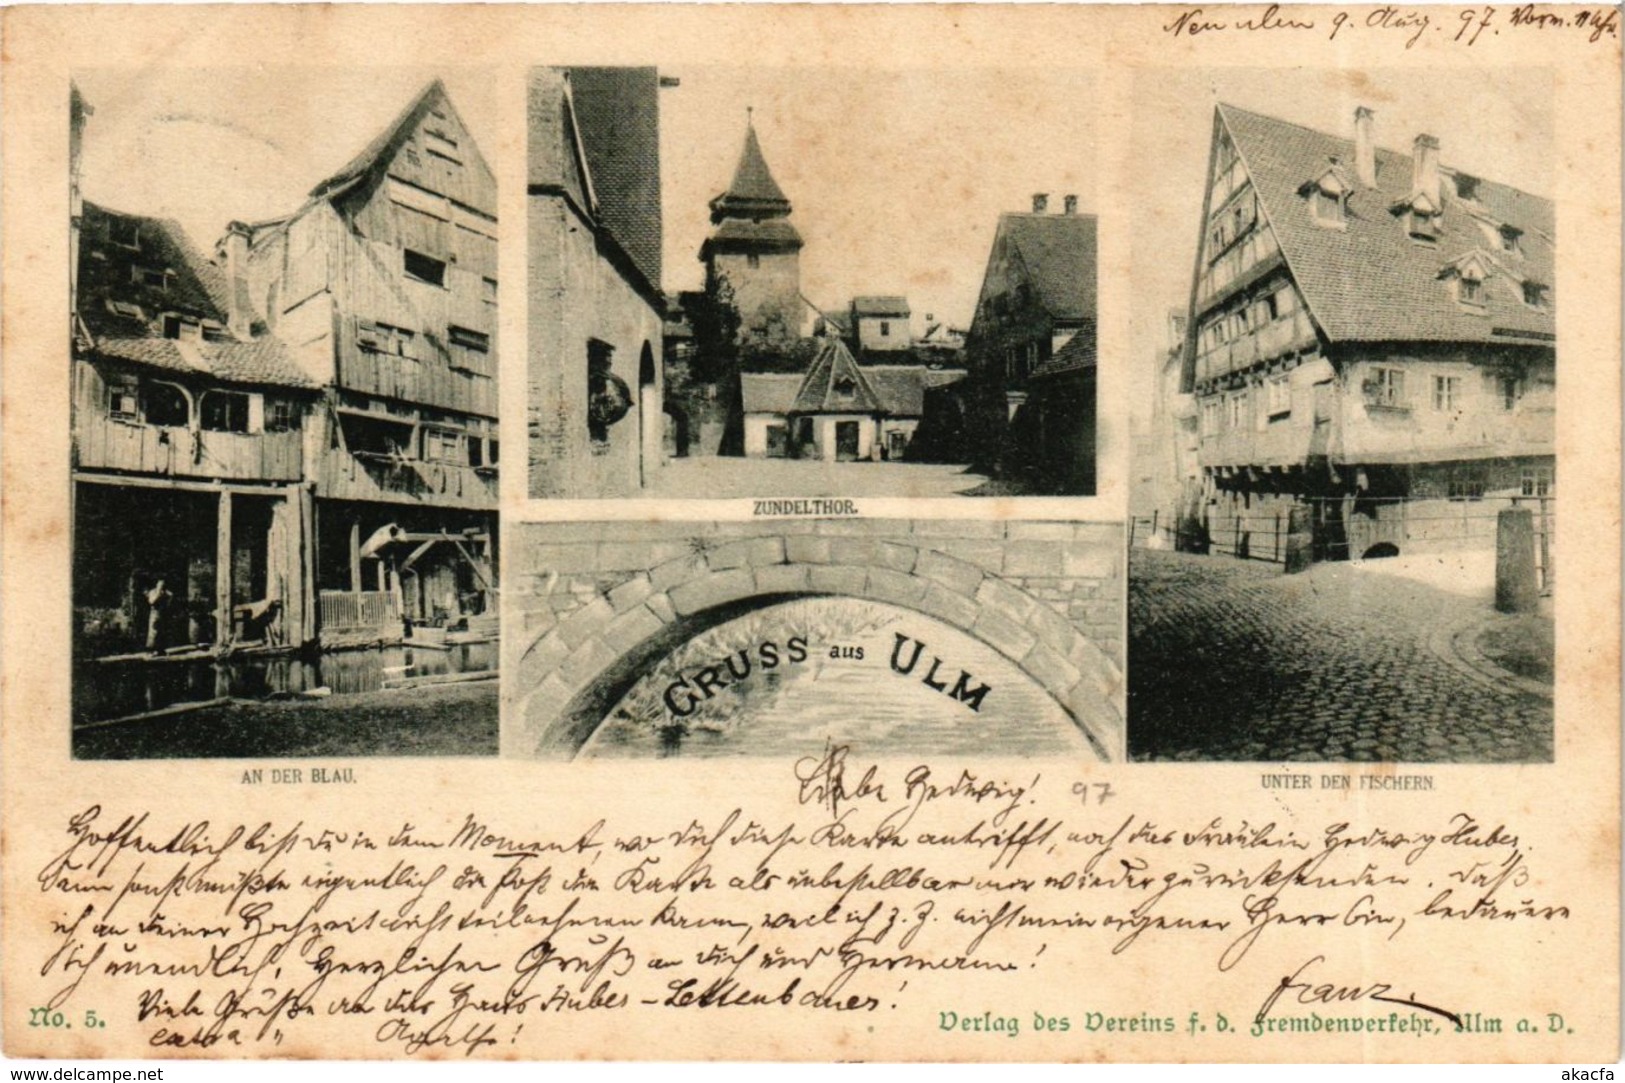 Neu ulm 9. Aug. 97. Vorm. 11 Uhr.
ZUNDELTHOR.
GRUSS aus ULM
AN DER BLAU.
UNTER DEN FISCHERN.
Liebe Hedwig! 97
Hoffentlich bist du in dem Moment, wo dich diese Karte antrifft, noch das Fräulein Hedwig Huber.
Denn sonst müßte eigentlich die Post die Karte als unbestellbar mir wieder zurücksenden. Daß
ich an deiner Hochzeit nicht teilnehmen kann, weil ich z. Z. nicht mein eigener Herr bin, bedauere
ich unendlich. Herzlichen Gruß an dich und Hermann!
Franz.
Viele Grüße an das Haus Huber - Lettenbauer!
extra "
No. 5.
Verlag des Vereins f. d. Fremdenverkehr, Ulm a. D.
akacfa-www.delcampe.net
akacfa